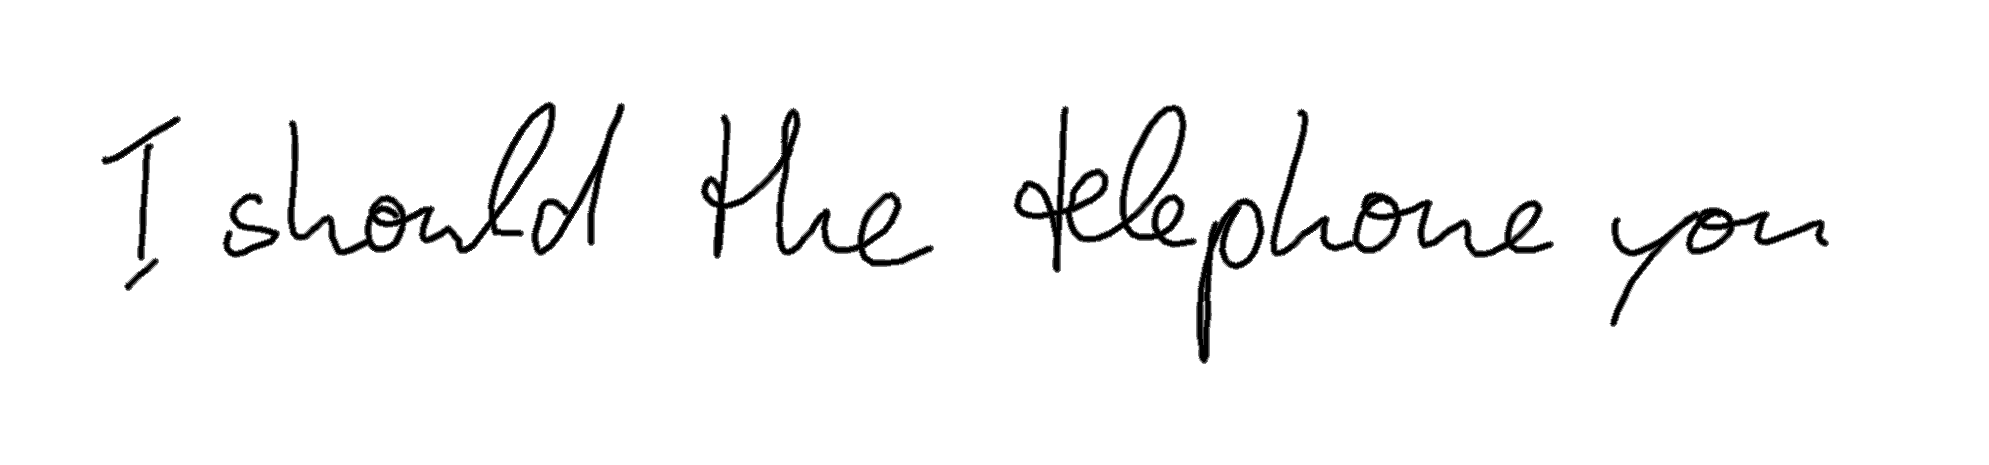 I should the telephone you